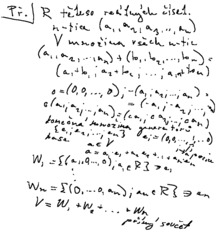 Př. R těleso reálných čísel.
n-tice (a₁, a₂, ..., aₙ)
V množina všech n-tic
(a₁, a₂, ..., aₙ) + (b₁, b₂, ..., bₙ) =
(a₁+b₁, a₂+b₂, ..., aₙ+bₙ)
o = (0, 0, ..., 0); -(a₁, ..., aₙ)
= (-a₁, ..., -aₙ)
c(a₁, a₂, ..., aₙ) = (ca₁, ca₂, ..., caₙ)
konečná množina generátorů
{a₁, a₂, ..., aₙ}
báze a ∈ V
W₁ = {(a₁, 0, ..., 0); a₁ ∈ R} ∋ a₁
Wₙ = {(0, ..., 0, aₙ); aₙ ∈ R} ∋ aₙ
V = W₁ + W₂ + ... + Wₙ
přímý součet